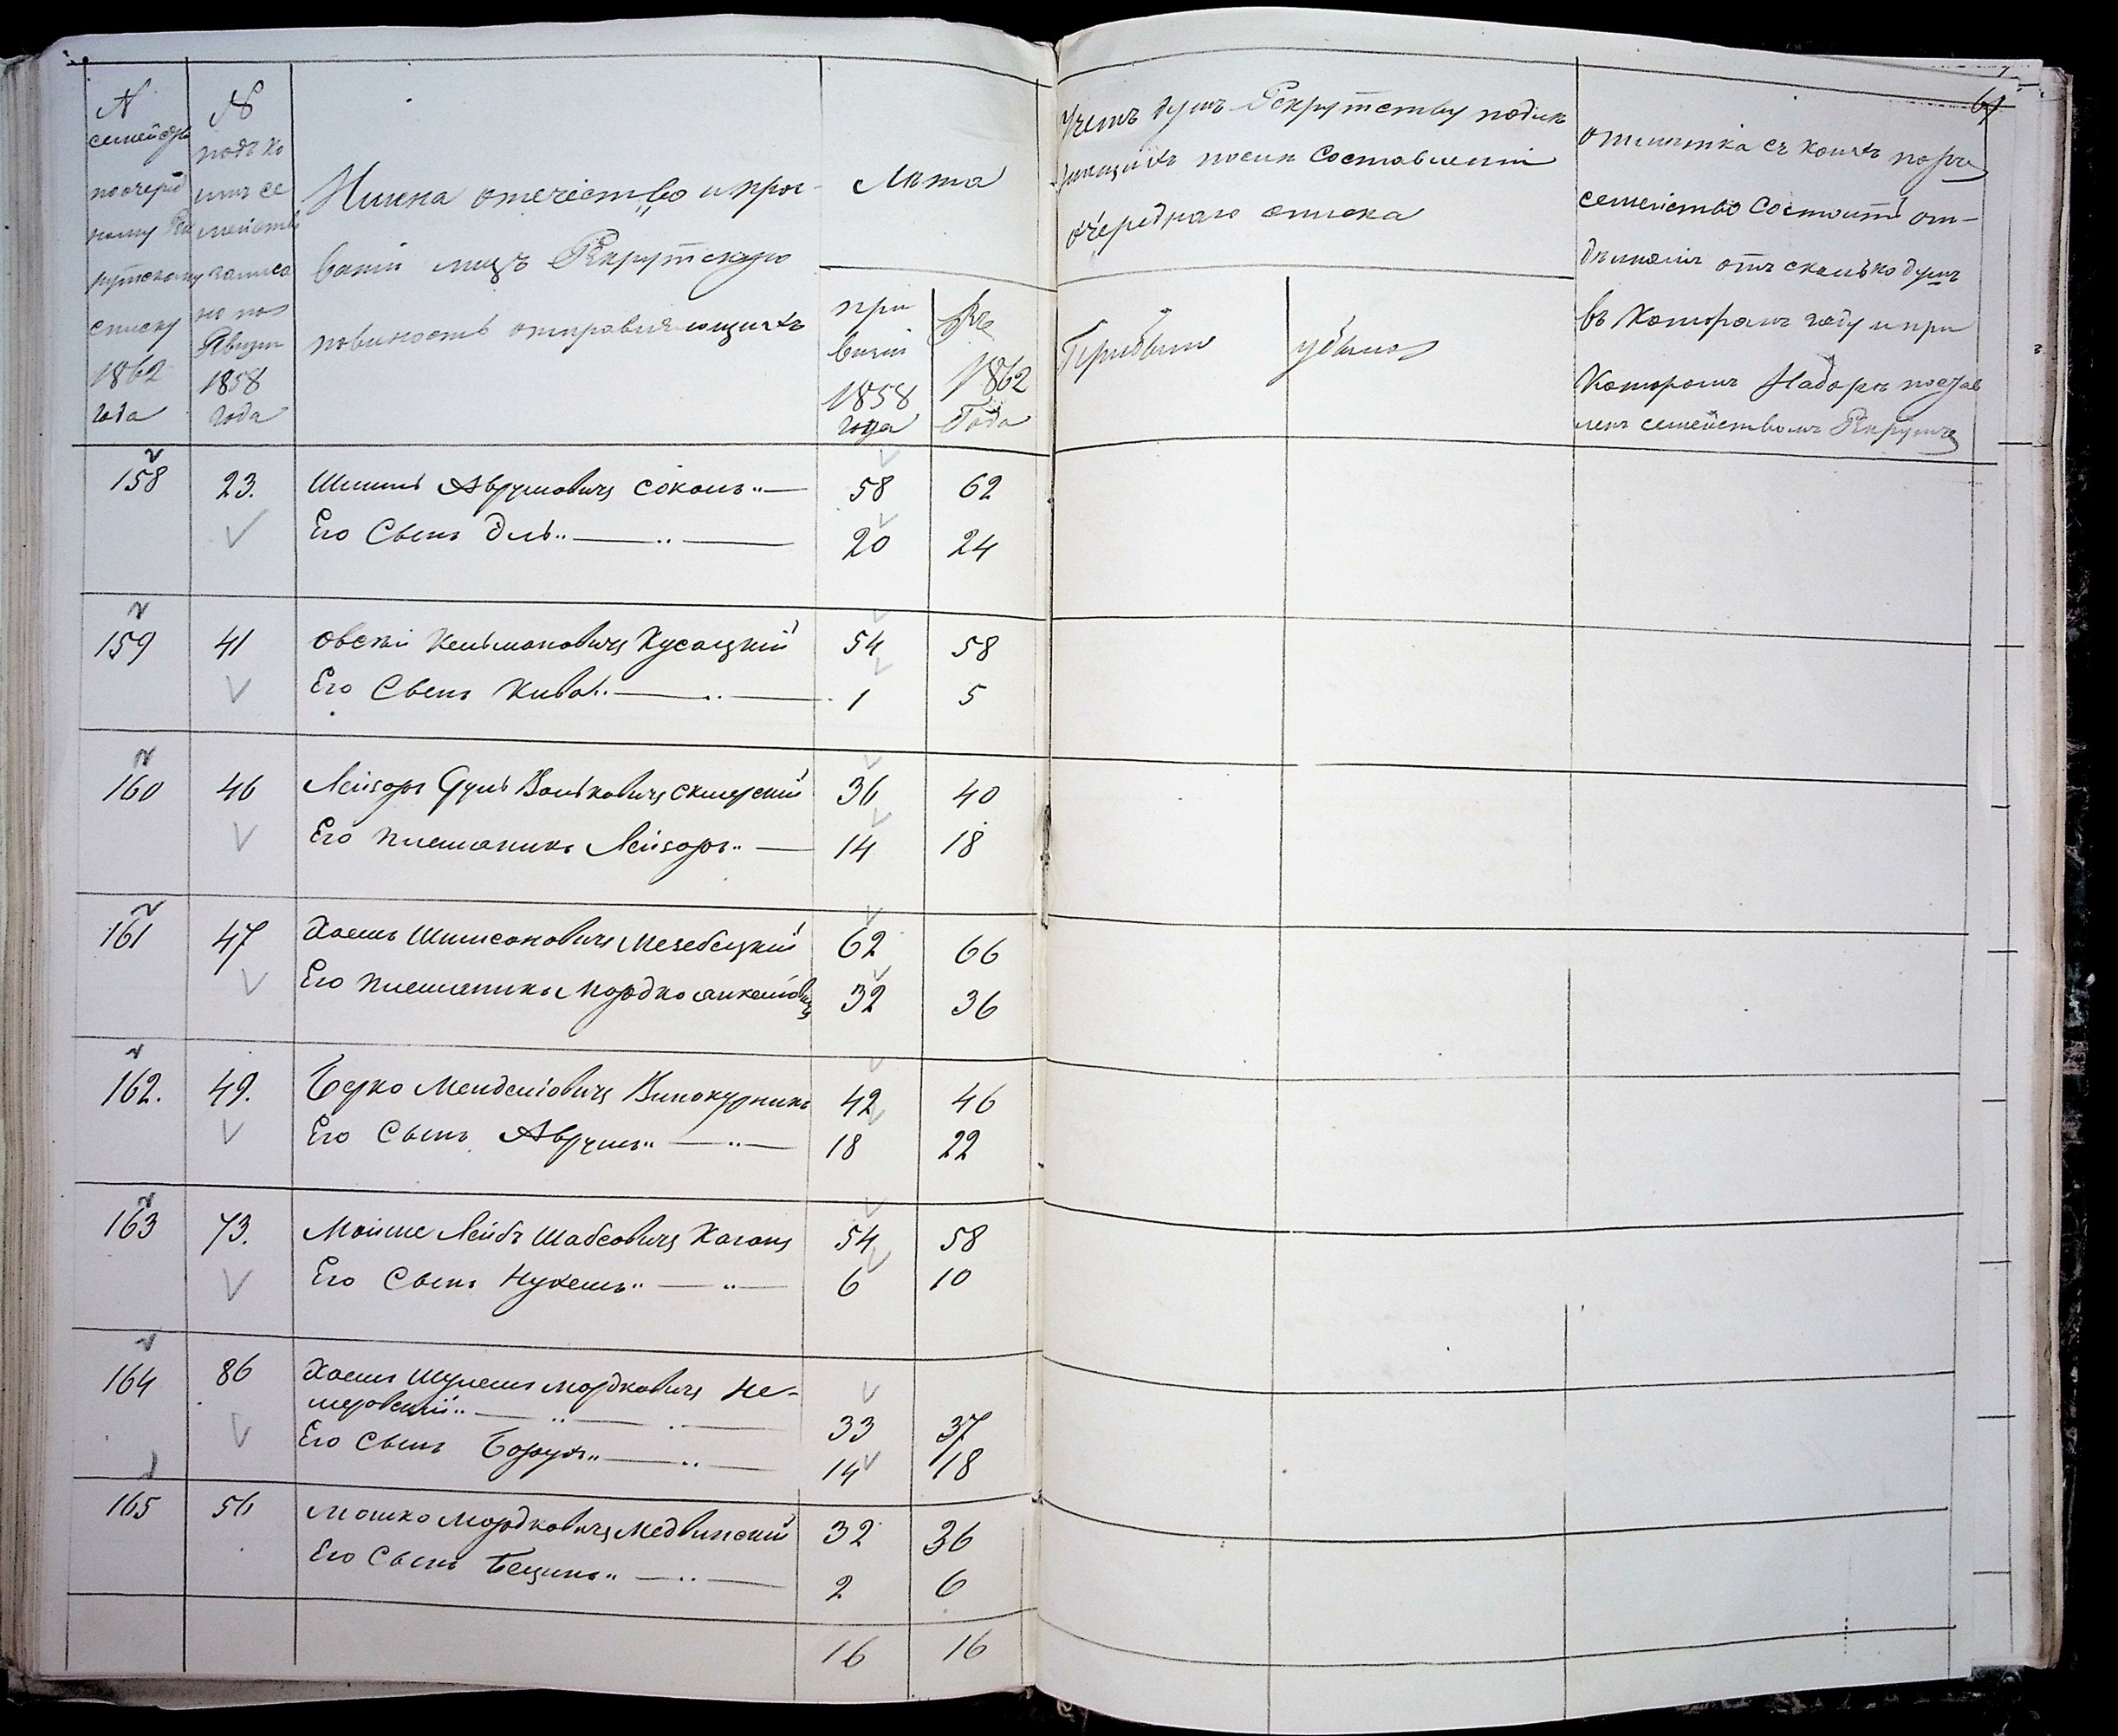 N
семейства
по очеред
ному Рек
рутскому
списку
1862
года
N
подъ ко
имъ се
мейство
записа
но по
Ревизіи
1858
года
Имена отечество и проз-
ваніи лицъ Рекрутскую
повиность отправляющихъ
Лѣта
при
визіи
1858
года
Въ
1862
Года
Учетъ душъ Рекрутству подле
жащихъ послѣ Составленій
очереднаго списка
Прибыло
убыло
61
отмѣтка съ коихъ поръ
семейство Состоитъ от-
дѣльнымъ отъ сколько душъ
въ Которомъ году и при
Которомъ Наборѣ постав
ленъ семействомъ Рекрутъ
158 23. Шимшъ Аврумовичъ Соколъ 58 62
Его Сынъ Эль 20 24
159 41 Овсей Кельмановичъ Кусацкій 54 58
Его Сынъ Кива 1 5
160 46 Лейзоръ Суль Вольковичъ Сквирскій 36 40
Его Племяникъ Лейзоръ 14 18
161 47 Хаимъ Шимсоновичъ Мезебецкій 62 66
Его Племяникъ Мордко Янкеловичъ 32 36
162. 49. Берко Менделіовичъ Винокурникъ 42 46
Его Сынъ Аврумъ 18 22
163 73. Мойше Лейбъ Шабсовичъ Каганъ 54 58
Его Сынъ Нухемъ 6 10
164 86 Хаимъ Шулемъ Мордковичъ Не-
меровскій 33 37
Его Сынъ Борухъ 14 18
165 56 Мошко Мордковичъ Медвинскій 32 36
Его Сынъ Бецинъ 2 6
16 16